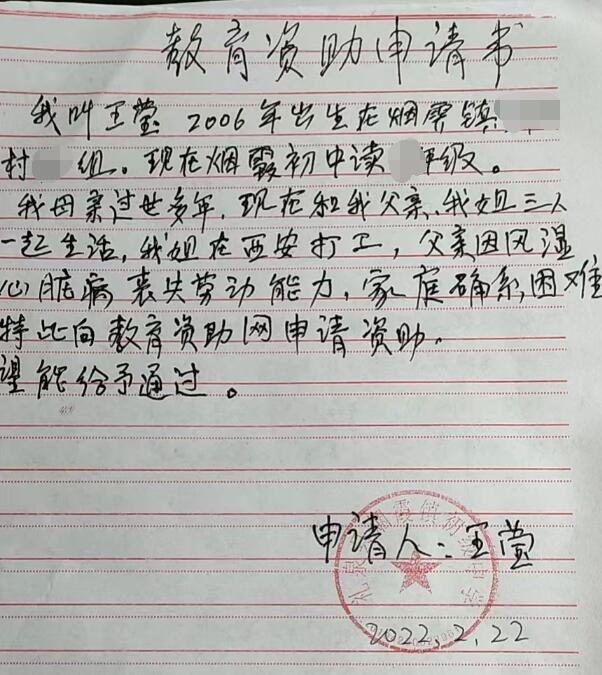 教育资助申请书
我叫王莹 2006年出生在烟霞镇
村 组。现在烟霞初中读 年级。
我母亲过世多年,现在和我父亲、我姐三人
一起生活,我姐在西安打工,父亲因风湿
心脏病丧失劳动能力,家庭确系困难
特此向教育资助网申请资助。
望能给予通过。
申请人:王莹
2022.2.22
礼泉 烟霞镇初级中学